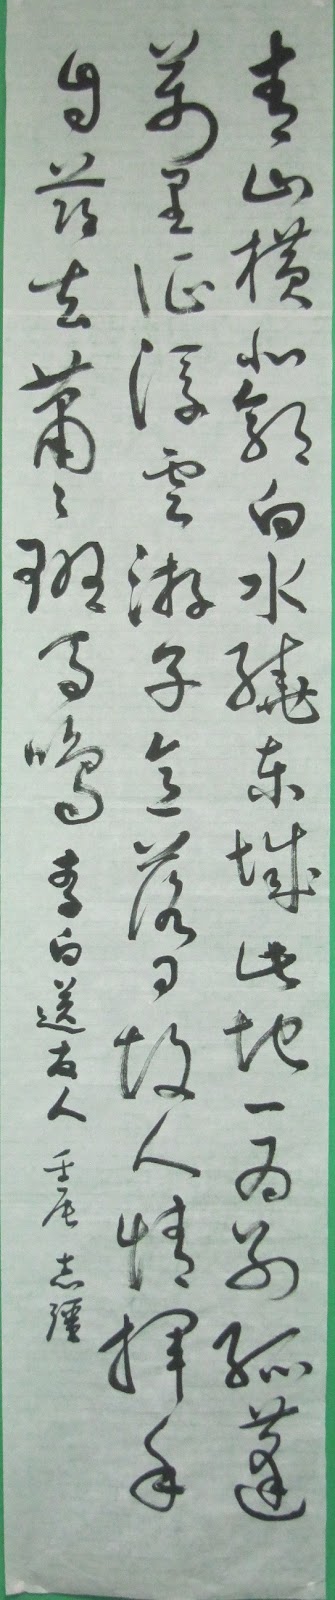 青山橫北郭白水繞東城此地一為別孤蓬
萬里征浮雲游子意落日故人情揮手
自茲去蕭々班馬鳴 李白送友人 壬辰 志